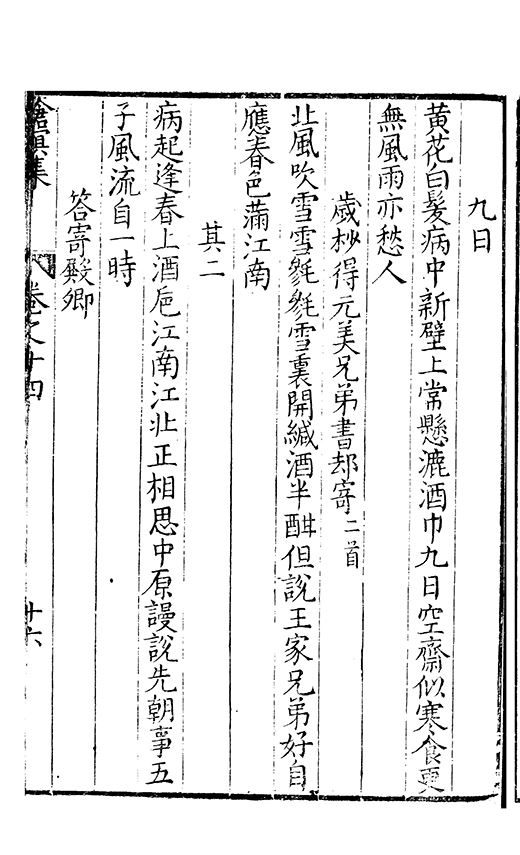 九日
黃花白髮病中新壁上常懸漉酒巾九日空齋似寒食更
無風雨亦愁人
歲杪得元美兄弟書却寄二首
北風吹雪雪毿毿雪裏開緘酒半酣但說王家兄弟好自
應春色滿江南
其二
病起逢春上酒巵江南江北正相思中原謾說先朝事五
子風流自一時
答寄殿卿
滄溟集
卷之十四
十六